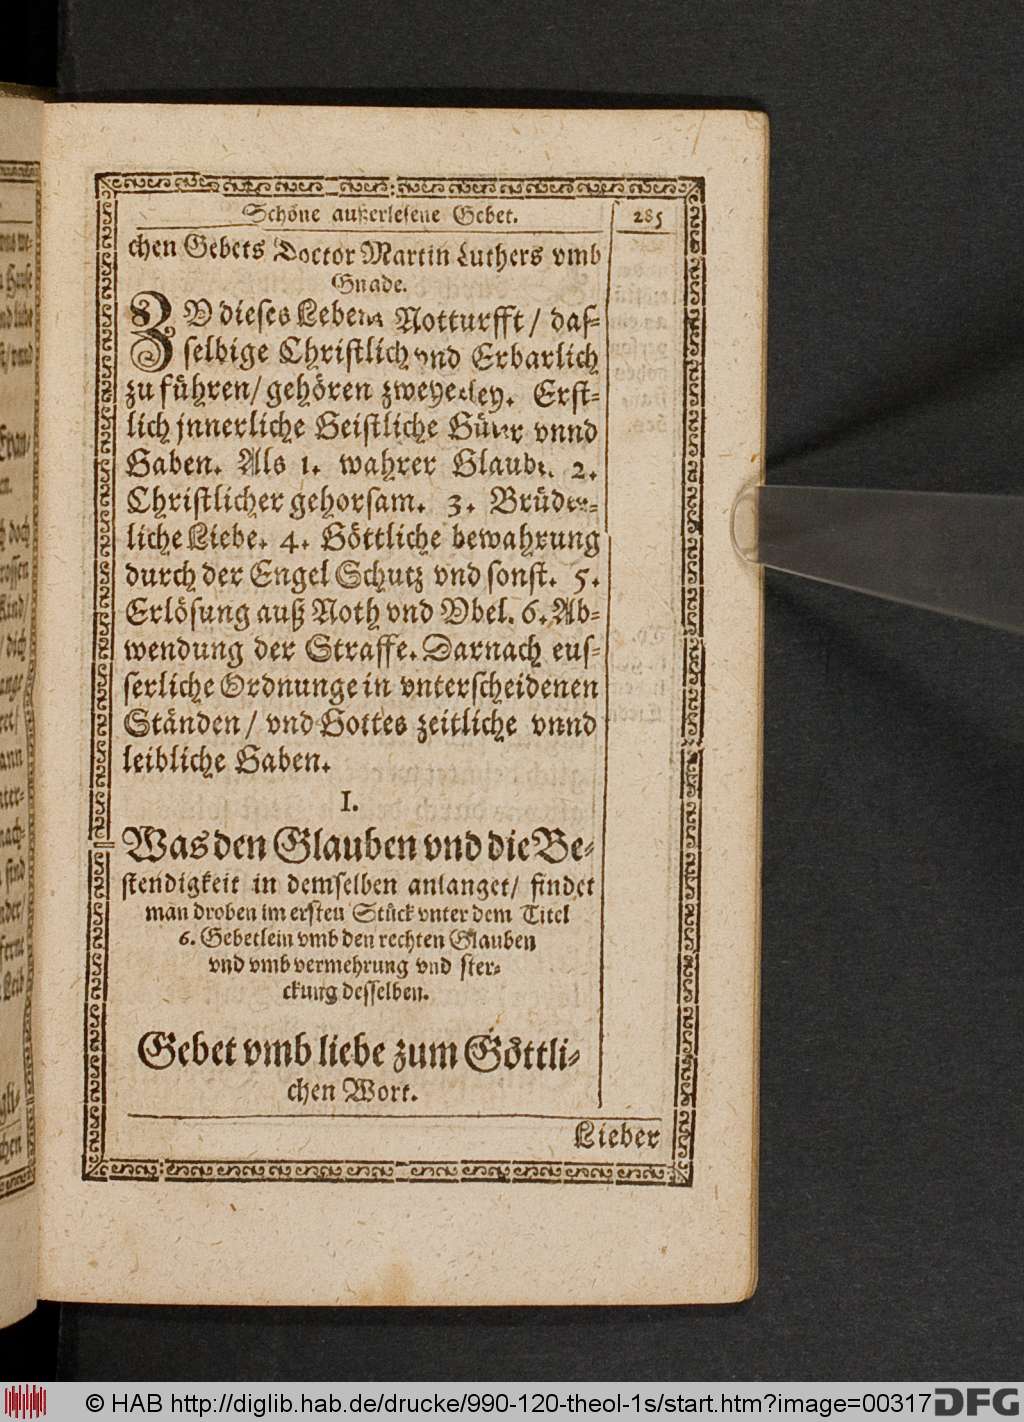 Schöne außerlesene Gebet. 285
chen Gebets Doctor Martin Luthers vmb
Gnade.
ZV dieses Lebens Notturfft / das-
selbige Christlich vnd Erbarlich
zu führen / gehören zweyerley. Erst-
lich jnnerliche Geistliche Güter vnnd
Gaben. Als 1. wahrer Glaube. 2.
Christlicher gehorsam. 3. Brüder-
liche Liebe. 4. Göttliche bewahrung
durch der Engel Schutz vnd sonst. 5.
Erlösung auß Noth vnd Vbel. 6. Ab-
wendung der Straffe. Darnach eus-
serliche Ordnunge in vnterscheidenen
Ständen / vnd Gottes zeitliche vnnd
leibliche Gaben.
I.
Was den Glauben vnd die Be-
stendigkeit in demselben anlanget / findet
man droben im ersten Stück vnter dem Titel
6. Gebetlein vmb den rechten Glauben
vnd vmb vermehrung vnd ster-
ckung desselben.
Gebet vmb liebe zum Göttli-
chen Wort.
Lieber
© HAB http://diglib.hab.de/drucke/990-120-theol-1s/start.htm?image=00317
DFG